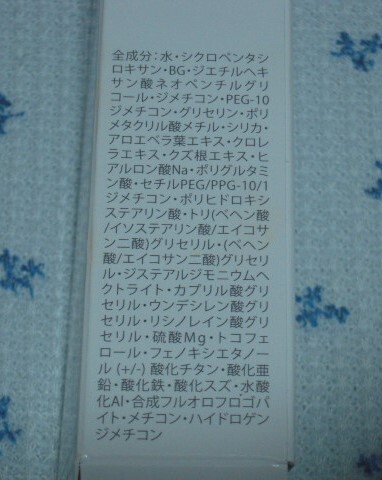 全成分：水・シクロペンタシ
ロキサン・BG・ジエチルヘキ
サン酸ネオペンチルグリ
コール・ジメチコン・PEG-10
ジメチコン・グリセリン・ポリ
メタクリル酸メチル・シリカ・
アロエベラ葉エキス・クロレ
ラエキス・クズ根エキス・ヒ
アルロン酸Na・ポリグルタミ
ン酸・セチルPEG/PPG-10/1
ジメチコン・ポリヒドロキシ
ステアリン酸・トリ(ベヘン酸
/イソステアリン酸/エイコサ
ン二酸)グリセリル・(ベヘン
酸/エイコサン二酸)グリセリ
ル・ジステアルジモニウムヘ
クトライト・カプリル酸グリ
セリル・ウンデシレン酸グリ
セリル・リシノレイン酸グリ
セリル・硫酸Mg・トコフェ
ロール・フェノキシエタノー
ル (+/-) 酸化チタン・酸化亜
鉛・酸化鉄・酸化スズ・水酸
化Al・合成フルオロフロゴパ
イト・メチコン・ハイドロゲン
ジメチコン